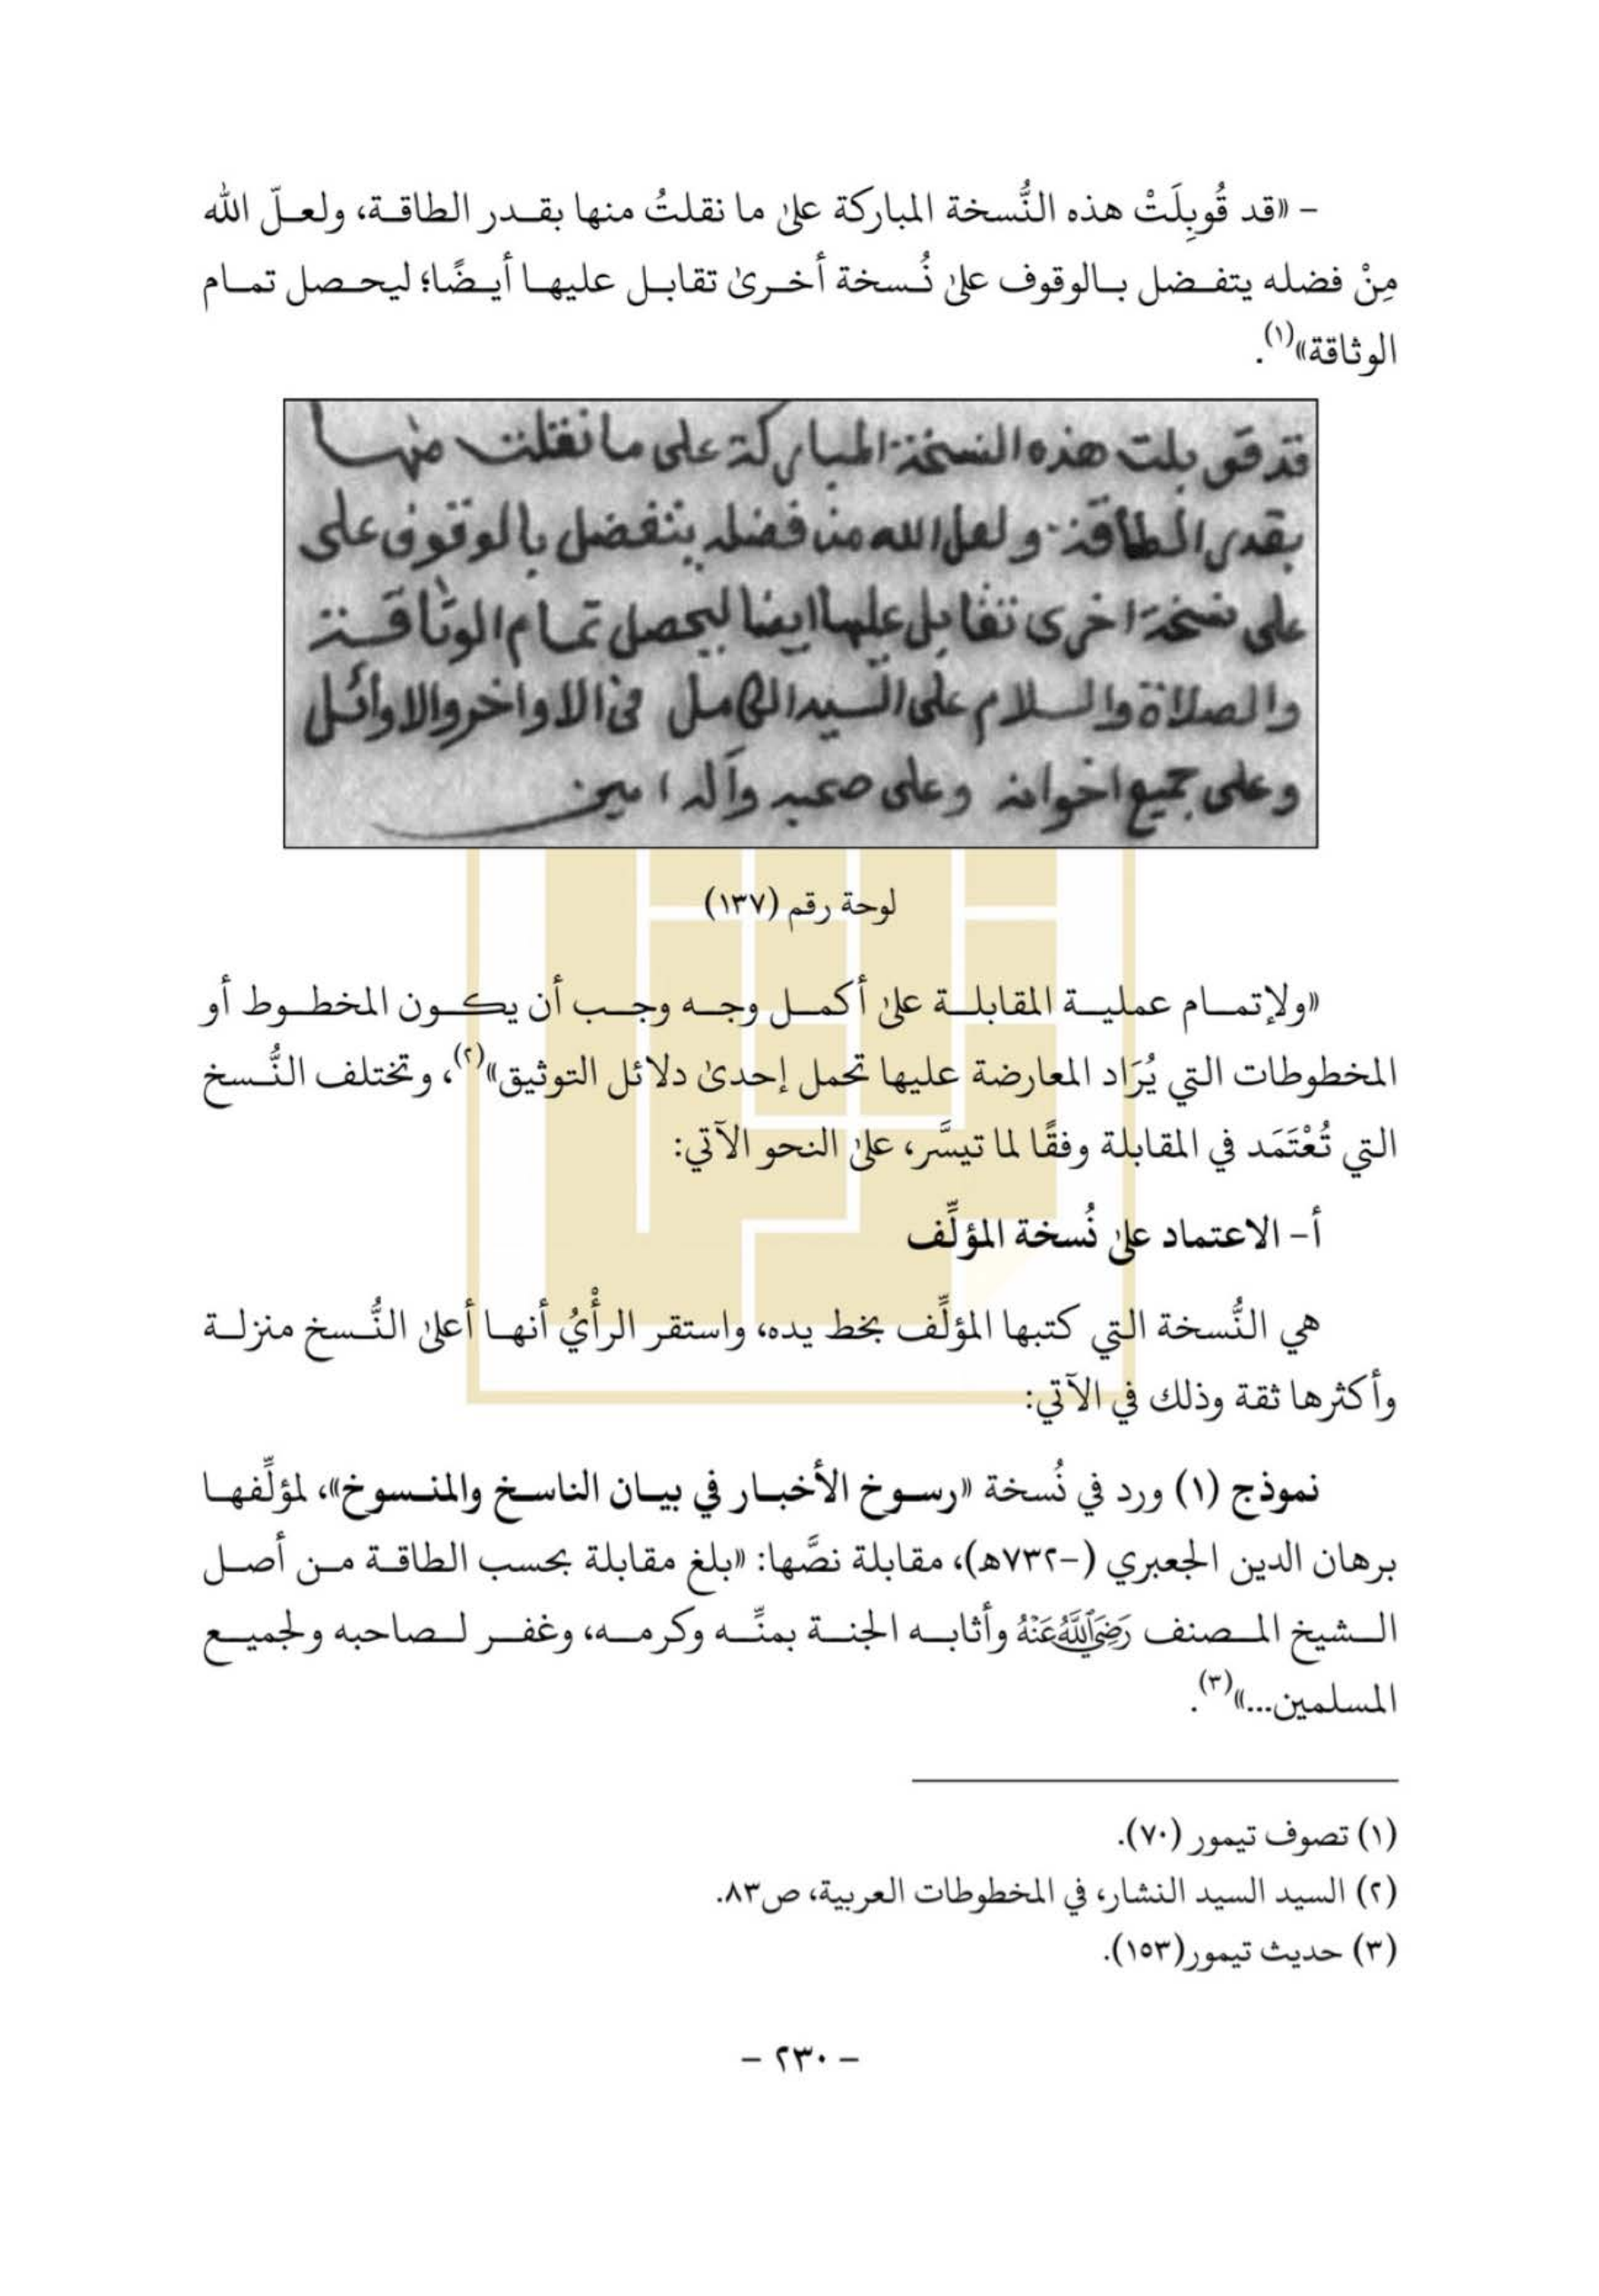 – «قد قُوبِلَتْ هذه النُّسخة المباركة على ما نقلتُ منها بقدر الطاقة، ولعلّ الله
مِنْ فضله يتفضل بالوقوف على نُسخة أخرى تقابل عليها أيضًا؛ ليحصل تمام
الوثاقة»(١).
قد قوبلت هذه النسخة المباركة على ما نقلت منها
بقدر الطاقة ولعل الله من فضله يتفضل بالوقوف على
على نسخة اخرى تقابل عليها ايضا ليحصل تمام الوثاقة
والصلاة والسلام على السيد الكامل في الاواخر والاوائل
وعلى جميع اخوانه وعلى صحبه وآله امين
لوحة رقم (١٣٧)
«ولإتمام عملية المقابلة على أكمل وجه وجب أن يكون المخطوط أو
المخطوطات التي يُرَاد المعارضة عليها تحمل إحدى دلائل التوثيق»(٢)، وتختلف النُّسخ
التي تُعْتَمَد في المقابلة وفقًا لما تيسَّر، على النحو الآتي:
أ- الاعتماد على نُسخة المؤلِّف
هي النُّسخة التي كتبها المؤلِّف بخط يده، واستقر الرأْيُ أنها أعلى النُّسخ منزلة
وأكثرها ثقة وذلك في الآتي:
نموذج (١) ورد في نُسخة «رسوخ الأخبار في بيان الناسخ والمنسوخ»، لمؤلِّفها
برهان الدين الجعبري (-٧٣٢ه)، مقابلة نصَّها: «بلغ مقابلة بحسب الطاقة من أصل
الشيخ المصنف رَضِيَٱللَّهُعَنْهُ وأثابه الجنة بمنِّه وكرمه، وغفر لصاحبه ولجميع
المسلمين...»(٣).
(١) تصوف تيمور (٧٠).
(٢) السيد السيد النشار، في المخطوطات العربية، ص٨٣.
(٣) حديث تيمور(١٥٣).
– ٢٣٠ –